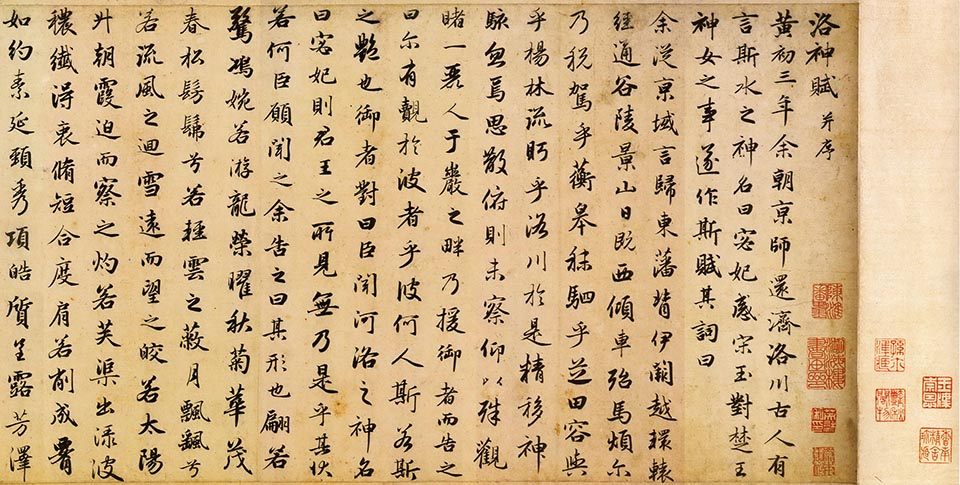 洛神賦 并序
黃初三年余朝京師還濟洛川古人有
言斯水之神名曰宓妃感宋玉對楚王
神女之事遂作斯賦其詞曰
余從京域言歸東藩背伊闕越轘轅
經通谷陵景山日既西傾車殆馬煩尒
乃稅駕乎蘅皋秣駟乎芝田容與
乎楊林流眄乎洛川於是精移神
駭忽焉思散俯則未察仰以殊觀
睹一麗人于巖之畔乃援御者而告之
曰尒有覿於彼者乎彼何人斯若斯
之豔也御者對曰臣聞河洛之神名
曰宓妃則君王之所見無乃是乎其狀
若何臣願聞之余告之曰其形也翩若
驚鴻婉若游龍榮曜秋菊華茂
春松髣髴兮若輕雲之蔽月飄颻兮
若流風之迴雪遠而望之皎若太陽
升朝霞迫而察之灼若芙渠出淥波
穠纖得衷脩短合度肩若削成腰
如約素延頸秀項皓質呈露芳澤